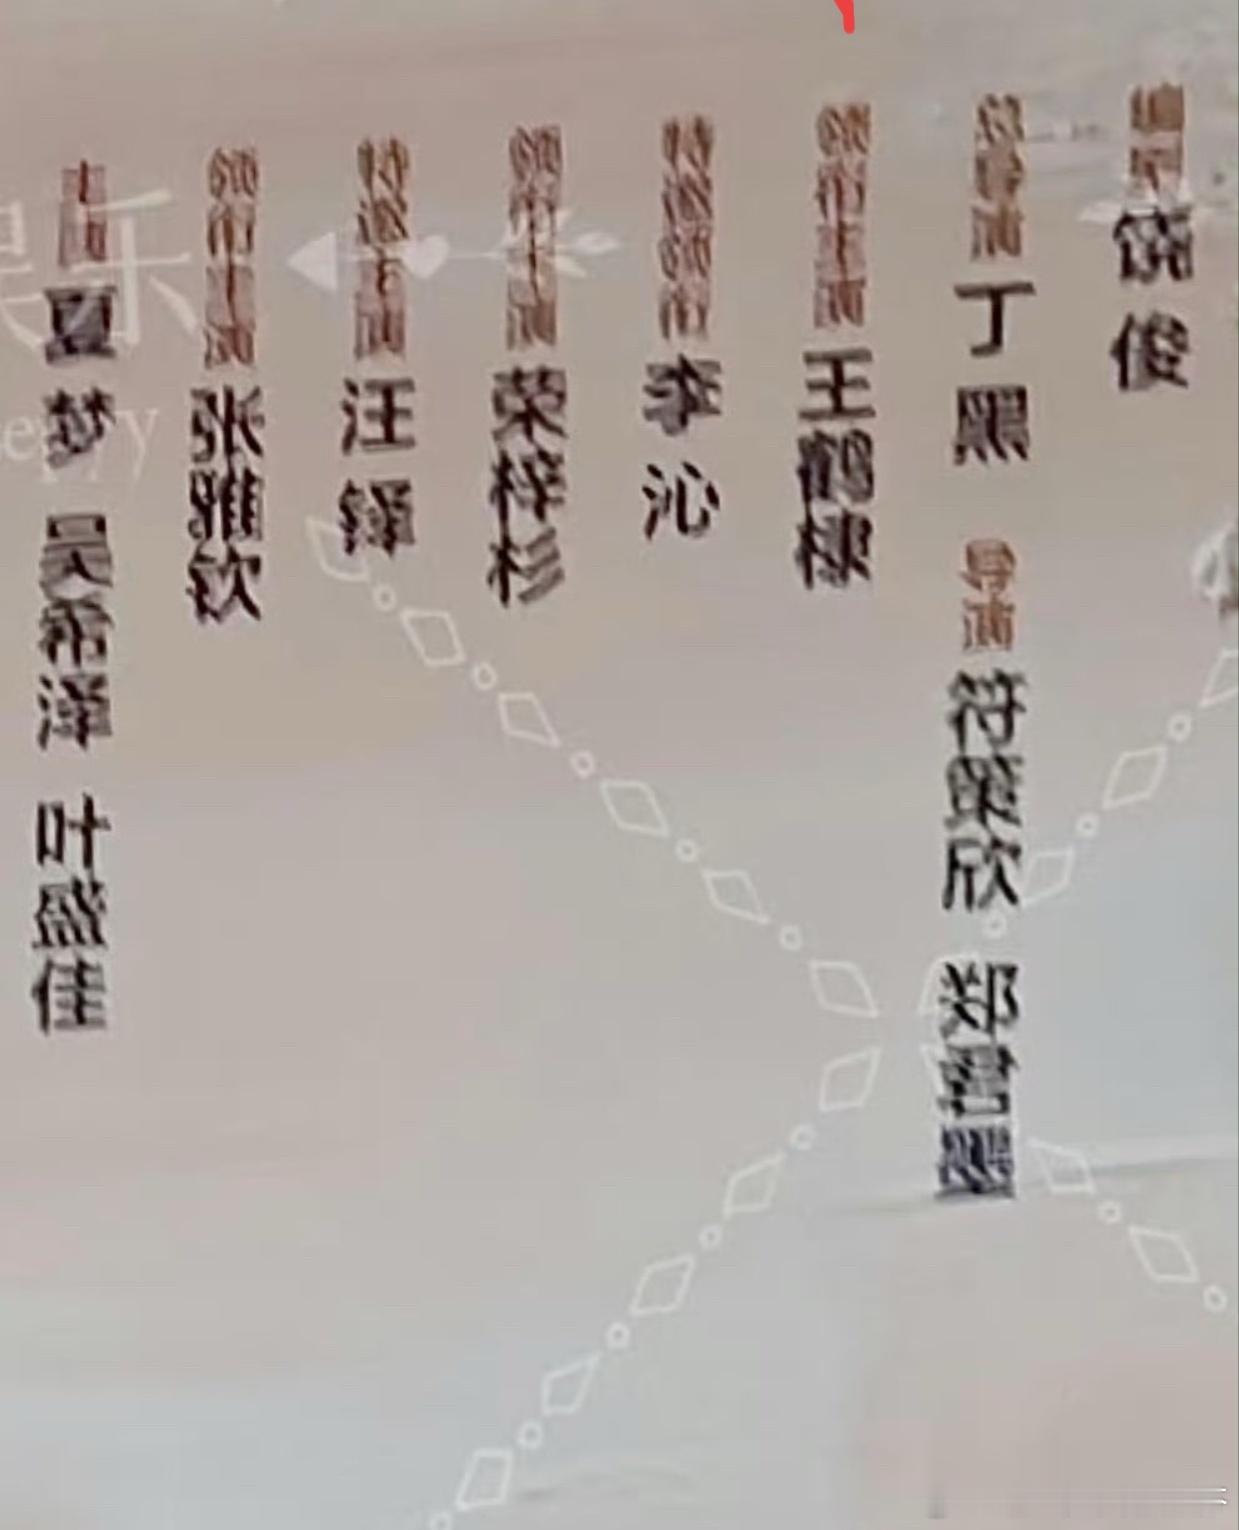 编剧 饶俊
总导演 丁黑 导演 符策欣 郑君墨
领衔主演 王鹤棣
特邀领衔 李沁
领衔主演 荣梓杉
特邀主演 汪铎
领衔主演 张雅钦
主演 夏梦 吴希泽 叶盛佳